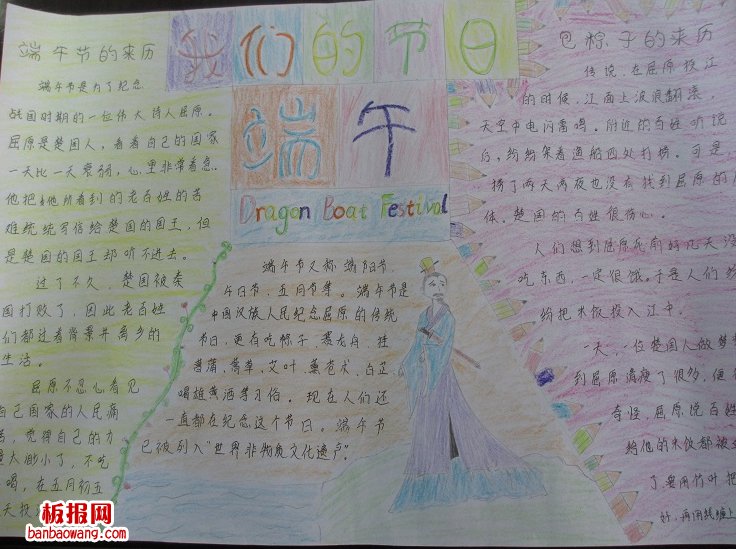 我们的节日
端午
Dragon Boat Festival
端午节的来历
端午节是为了纪念
战国时期的一位伟大诗人屈原。
屈原是楚国人，看着自己的国家
一天比一天衰弱，心里非常着急。
他把他所看到的老百姓的苦
难统统写信给楚国的国王，但
是楚国的国王却听不进去。
过了不久，楚国被秦
国打败了，因此老百姓
们都过着背景井离乡的
生活。
屈原不忍心看见
自己国家的人民痛
苦，觉得自己的力
量太渺小了，不吃
喝，在五月初五
天投
端午节又称端阳节
午日节、五月节等。端午节是
中国汉族人民纪念屈原的传统
节日，更有吃粽子，赛龙舟，挂
菖蒲、蒿草、艾叶，薰苍术、白芷，
喝雄黄酒等习俗。现在人们还
一直都在纪念这个节日。端午节
已被列入“世界非物质文化遗产”。
包粽子的来历
传说，在屈原投江
的时候，江面上波浪翻滚，
天空中电闪雷鸣。附近的百姓听说
后，纷纷架着渔船四处打捞。可是，
捞了两天两夜也没有找到屈原的尸
体。楚国的百姓很伤心。
人们想到屈原死前好几天没
吃东西，一定很饿。于是人们纷
纷把米饭投入江中。
一天，一位楚国人做梦
到屈原消瘦了很多，便
奇怪，屈原说百姓
给他的米饭都被
了，要用竹叶把
好，再用线缠上
板报网
banbaowang.com